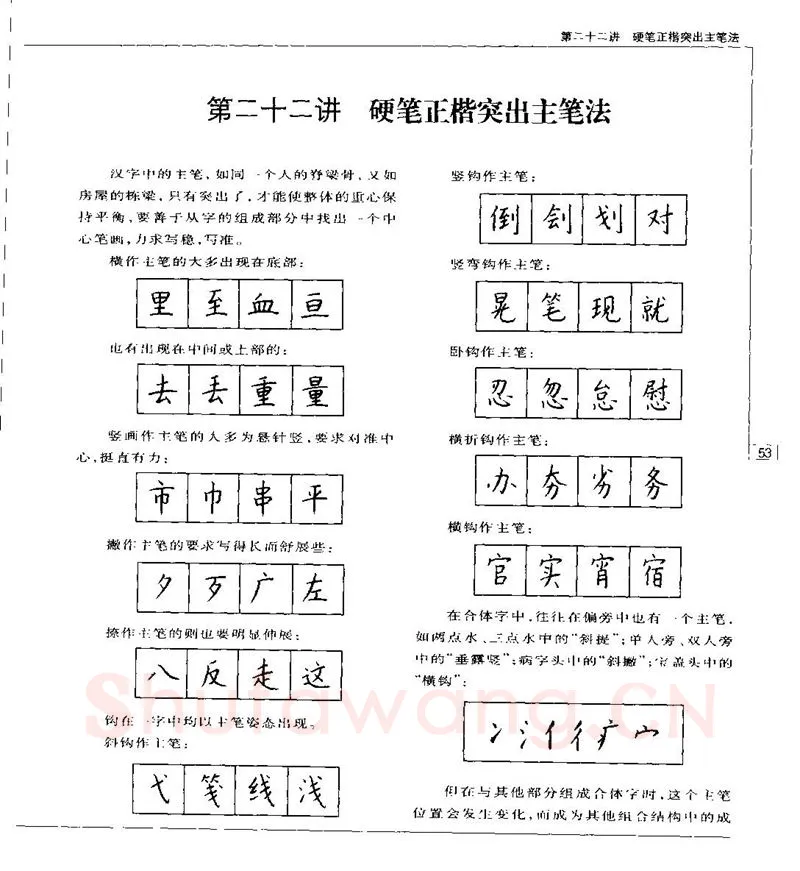 第二十二讲 硬笔正楷突出主笔法
第二十二讲 硬笔正楷突出主笔法
汉字中的主笔，如同一个人的脊梁骨，又如
房屋的栋梁，只有突出了，才能使整体的重心保
持平衡，要善于从字的组成部分中找出一个中
心笔画，力求写稳，写准。
横作主笔的大多出现在底部：
里至血亘
也有出现在中间或上部的：
去丢重量
竖画作主笔的大多为悬针竖，要求对准中
心，挺直有力：
市巾串平
撇作主笔的要求写得长而舒展些：
夕歹广左
捺作主笔的则也要明显伸展：
八反走这
钩在一字中均以主笔姿态出现。
斜钩作主笔：
弋笺线浅
竖钩作主笔：
倒刽划对
竖弯钩作主笔：
晃笔现就
卧钩作主笔：
忍忽怠慰
横折钩作主笔：
办夯劣务
横钩作主笔：
官实宵宿
在合体字中，往往在偏旁中也有一个主笔，
如两点水、三点水中的“斜提”；单人旁、双人旁
中的“垂露竖”；病字头中的“斜撇”；宝盖头中的
“横钩”：
冫氵亻彳疒宀
但在与其他部分组成合体字时，这个主笔
位置会发生变化，而成为其他组合结构中的成
53
Shufawang.CN